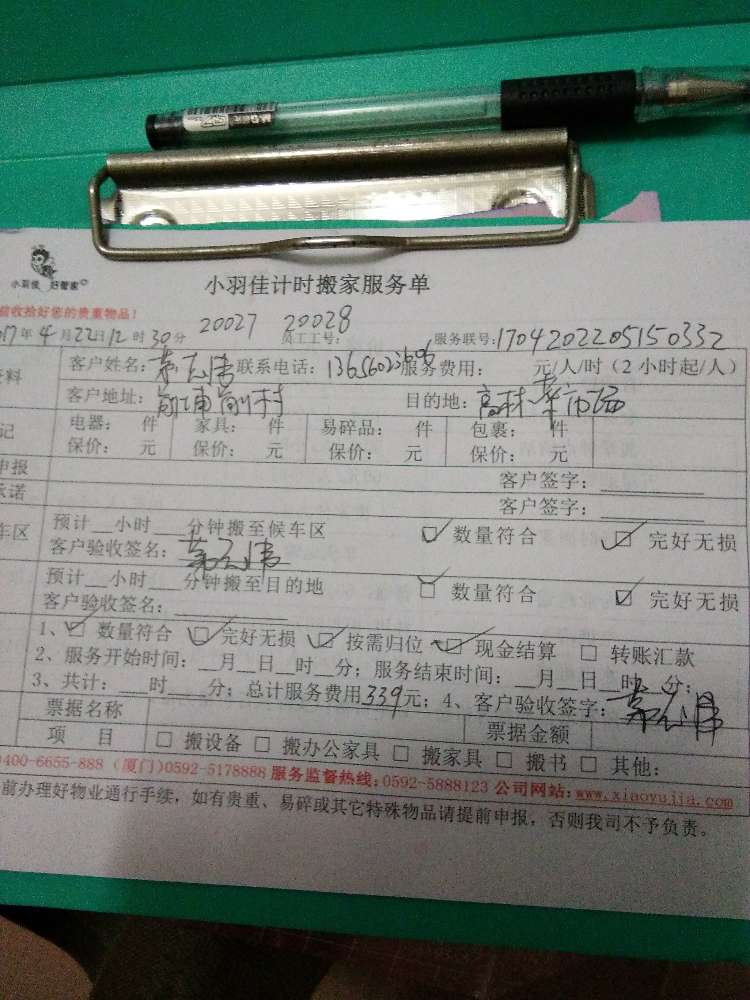 小羽佳 好管家
小羽佳计时搬家服务单
前收拾好您的贵重物品!
017年4月22日12时30分 20027 20028 员工工号: 服务联号:1704202205150332
资料 客户姓名: 联系电话: 服务费用: 元/人/时(2小时起/人)
客户地址: 前埔前村 目的地:高林菜市场
记 电器: 件 家具: 件 易碎品: 件 包裹: 件
保价: 元 保价: 元 保价: 元 保价: 元
申报 客户签字:
承诺 客户签字:
车区 预计__小时___分钟搬至候车区 ☑ 数量符合 ☑ 完好无损
客户验收签名:
预计__小时___分钟搬至目的地 ☑ 数量符合 ☑ 完好无损
客户验收签名:
1、☑ 数量符合 ☑ 完好无损 ☑ 按需归位 ☑ 现金结算 □ 转账汇款
2、服务开始时间:__月__日__时__分;服务结束时间:__月__日__时__分;
3、共计:___时____分;总计服务费用339元;4、客户验收签字:
票据名称 票据金额
项 目 □ 搬设备 □ 搬办公家具 □ 搬家具 □ 搬书 □ 其他:
0400-6655-888 (厦门)0592-5178888 服务监督热线:0592-5888123 公司网站:www.xiaoyujia.com
前办理好物业通行手续,如有贵重、易碎或其它特殊物品请提前申报,否则我司不予负责。